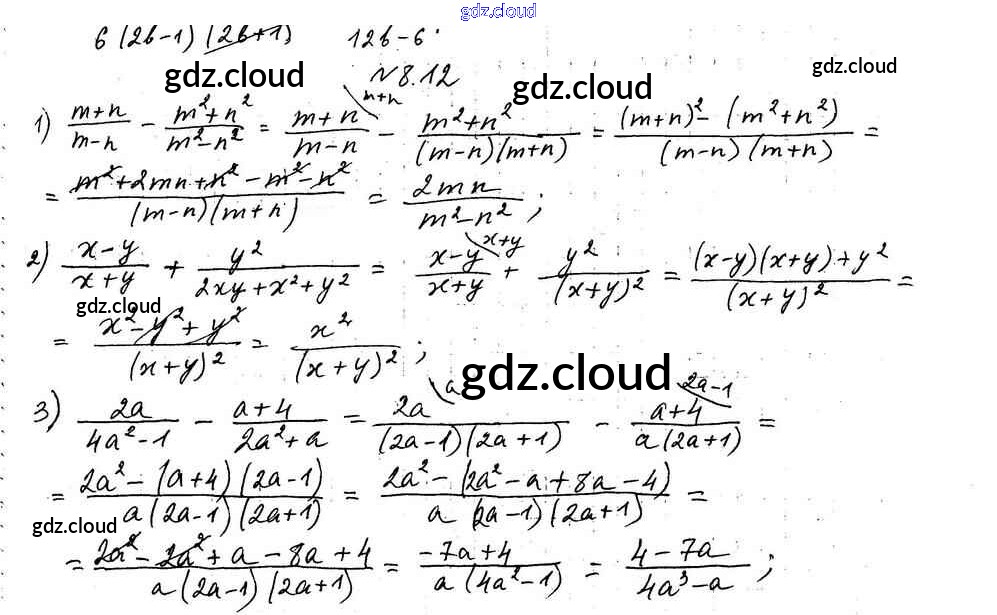 gdz.cloud
6(2b-1)(2b+1) 12b-6.
gdz.cloud gdz.cloud gdz.cloud
№8.12
1) (m+n)/(m-n) - (m²+n²)/(m²-n²) = (m+n)/(m-n) \m+n - (m²+n²)/((m-n)(m+n)) = ((m+n)² - (m²+n²))/((m-n)(m+n)) =
= (m²+2mn+n²-m²-n²)/((m-n)(m+n)) = 2mn/(m²-n²);
2) (x-y)/(x+y) + y²/(2xy+x²+y²) = (x-y)/(x+y) \x+y + y²/(x+y)² = ((x-y)(x+y)+y²)/(x+y)² =
gdz.cloud
= (x²-y²+y²)/(x+y)² = x²/(x+y)²;
gdz.cloud
3) 2a/(4a²-1) - (a+4)/(2a²+a) = 2a/((2a-1)(2a+1)) \a - (a+4)/(a(2a+1)) \2a-1 =
= (2a² - (a+4)(2a-1))/(a(2a-1)(2a+1)) = (2a² - (2a²-a+8a-4))/(a(2a-1)(2a+1)) =
gdz.cloud gdz.cloud
= (2a²-2a²+a-8a+4)/(a(2a-1)(2a+1)) = (-7a+4)/(a(4a²-1)) = (4-7a)/(4a³-a);